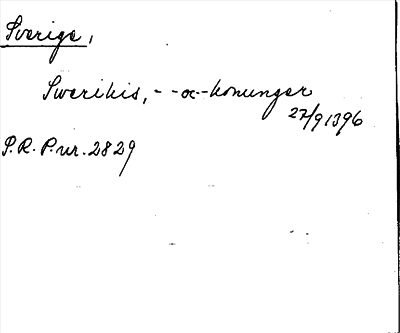 Sverige,
Swerikis, - -oc- konunger
27/9 1396
P.R. P. nr. 2829